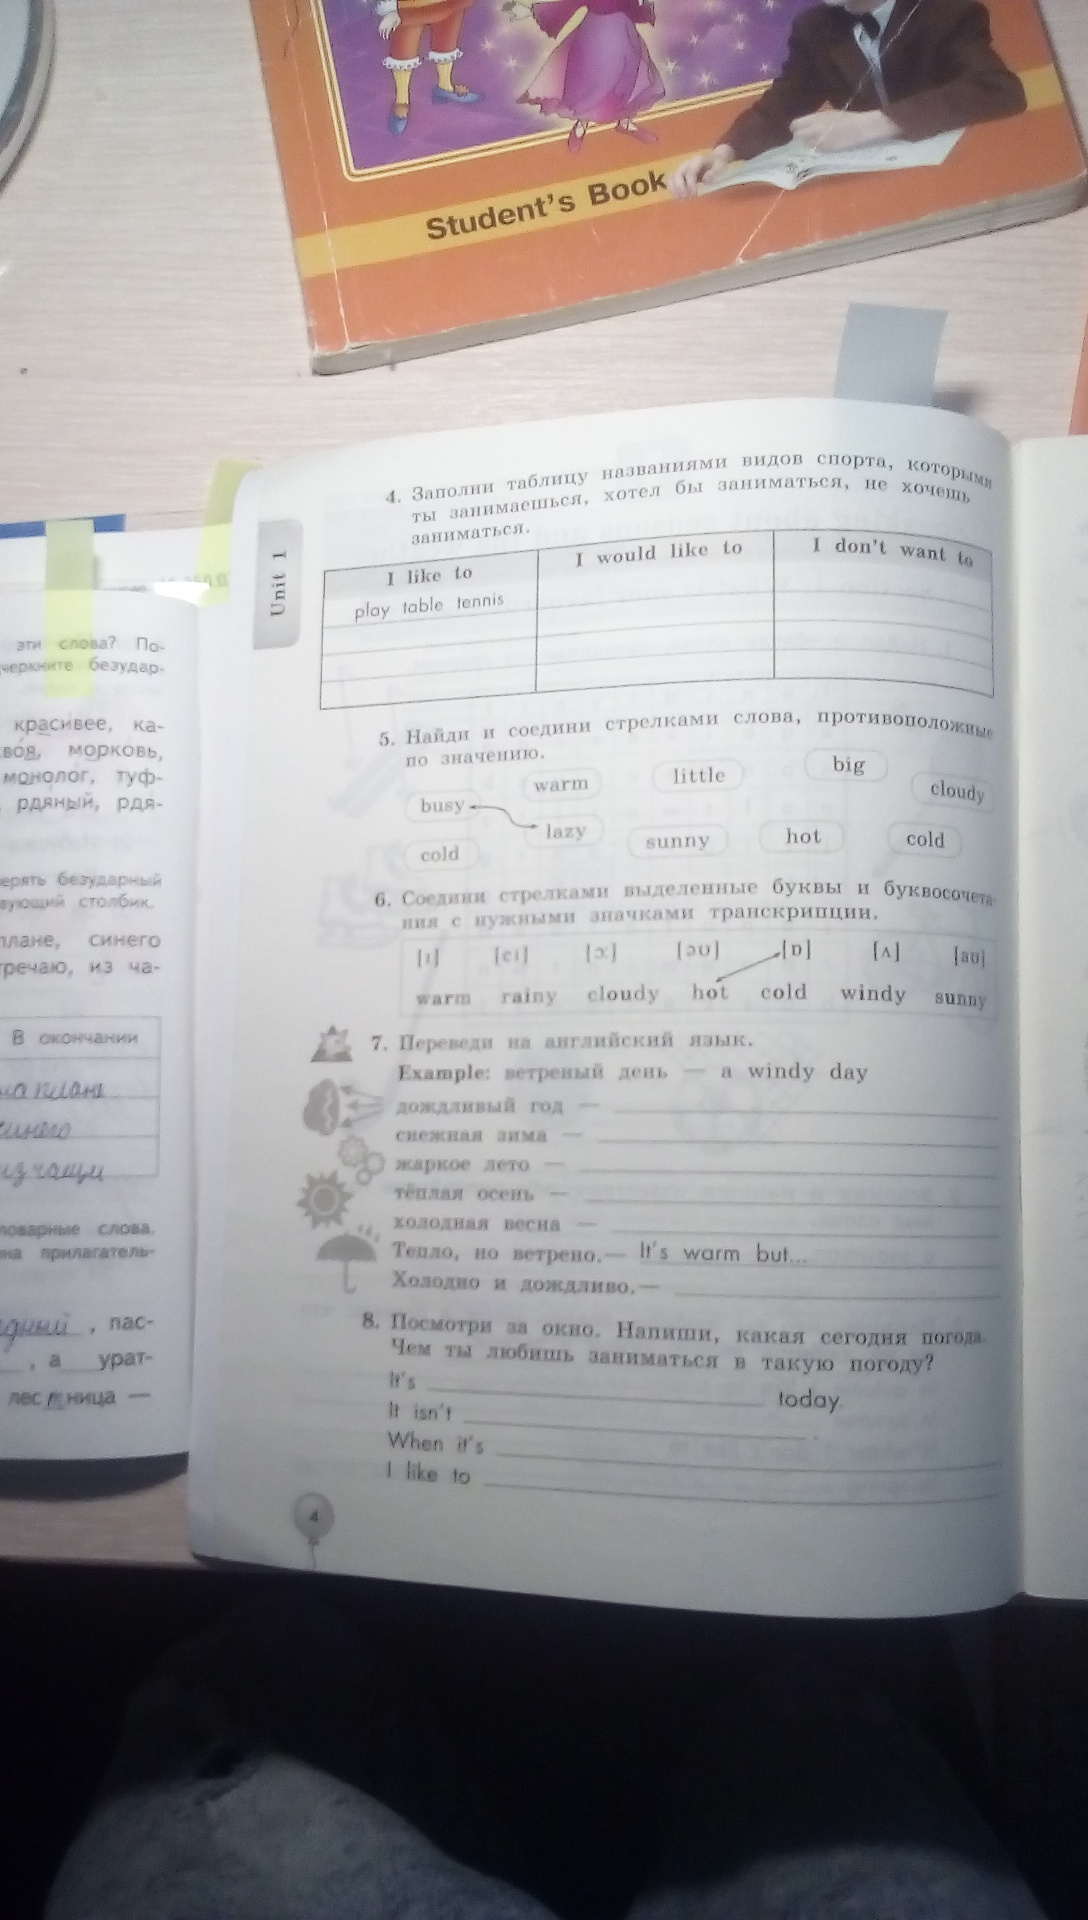 Student's Book
Unit 1
4. Заполни таблицу названиями видов спорта, которыми
ты занимаешься, хотел бы заниматься, не хочешь
заниматься.
I like to
I would like to
I don't want to
play table tennis
5. Найди и соедини стрелками слова, противоположные
по значению.
warm
little
big
cloudy
busy
lazy
sunny
hot
cold
cold
6. Соедини стрелками выделенные буквы и буквосочета-
ния с нужными значками транскрипции.
[ɪ] [eɪ] [ɔː] [əʊ] [ɒ] [ʌ] [aʊ]
warm rainy cloudy hot cold windy sunny
7. Переведи на английский язык.
Example: ветреный день — a windy day
дождливый год —
снежная зима —
жаркое лето —
тёплая осень —
холодная весна —
Тепло, но ветрено.— It's warm but...
Холодно и дождливо.—
8. Посмотри за окно. Напиши, какая сегодня погода.
Чем ты любишь заниматься в такую погоду?
It's ______ today.
It isn't ______ .
When it's
I like to
4
эти слова? По-
черкните безудар-
красивее, ка-
морковь,
монолог, туф-
рдяный, рдя-
ерять безударный
вующий столбик.
плане, синего
тречаю, из ча-
В окончании
на плане
синего
из чащи
ловарные слова.
на прилагатель-
дный , пас-
, а урат-
лестница —